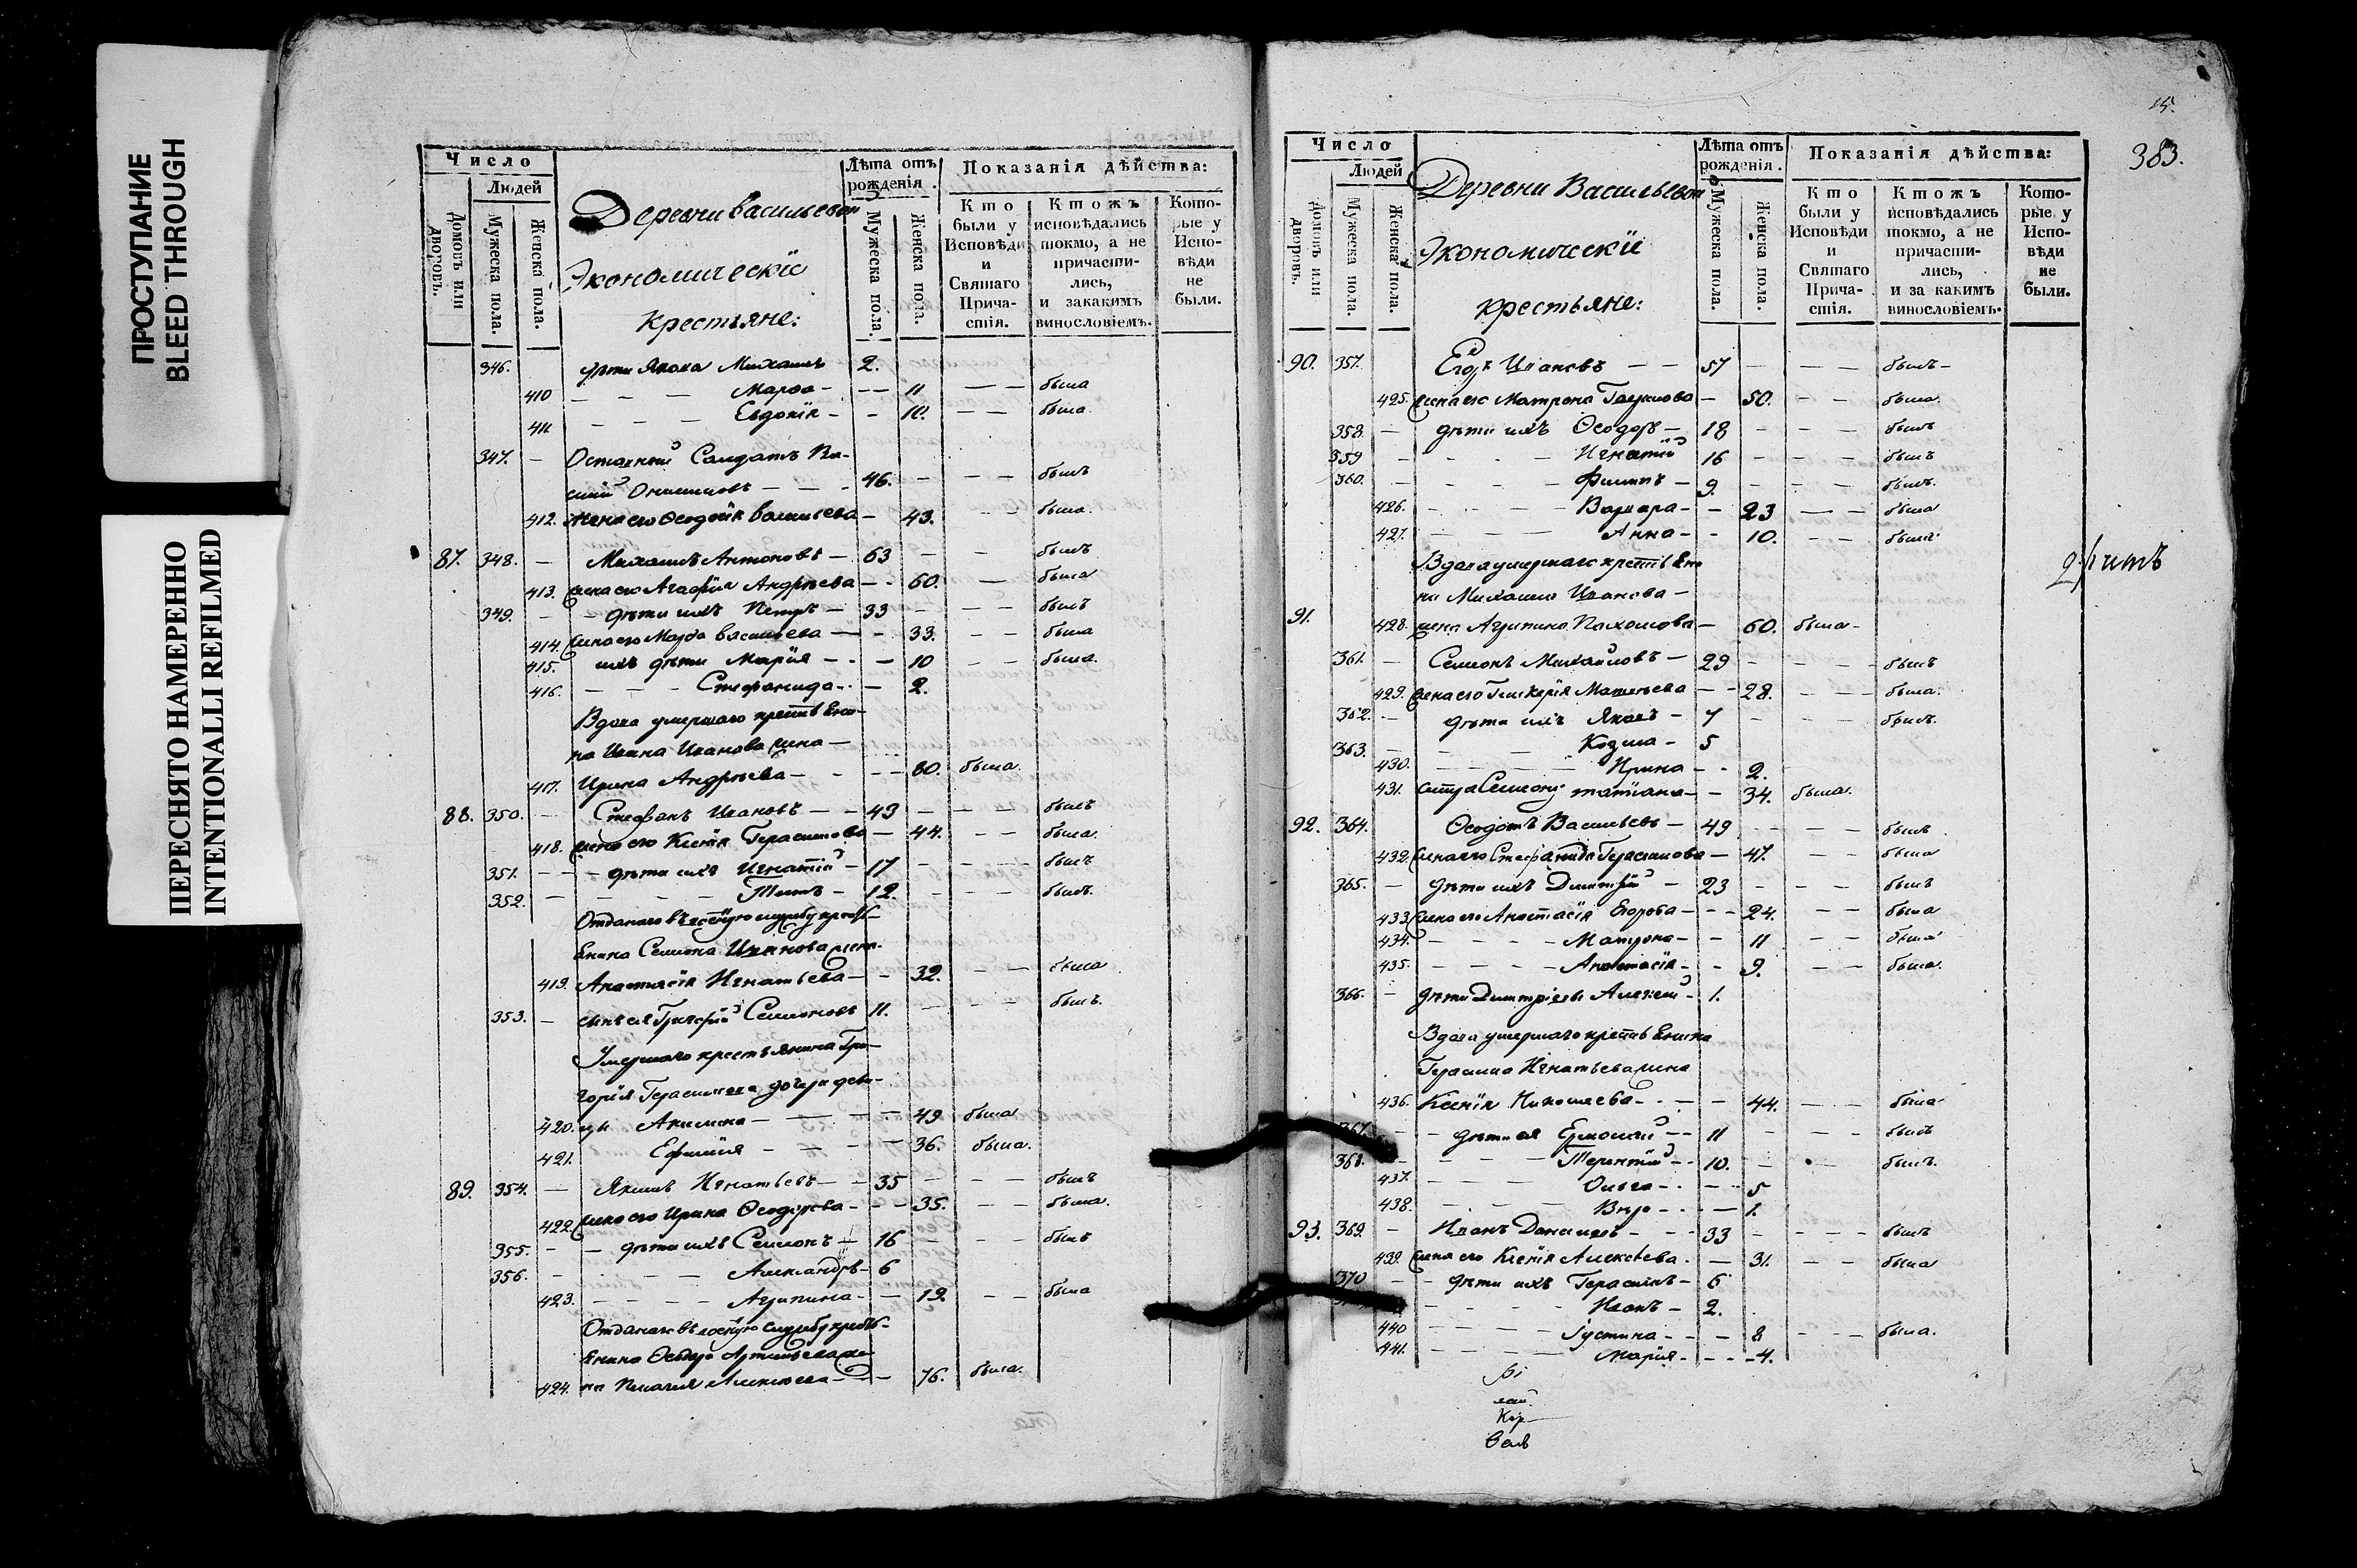 ПРОСТУПАНИЕ
BLEED THROUGH
ПЕРЕСНЯТО НАМЕРЕННО
INTENTIONALLI REFILMED
Число
Людей
Домовъ или дворовъ.
Мужеска пола.
Женска пола.
Деревни Васильевой
Экономическіе
крестьяне:
Лѣта отъ рожденія.
Мужеска пола.
Женска пола.
Показанія дѣйства:
Кто были у Исповѣди и Святаго Прича-стія.
Ктожъ исповѣдались токмо, а не причасти-лись, и закакимъ винословіемъ.
Кото-рые у Испо-вѣди не были.
346. дѣти Якова Михаилъ 2.
410 Марѳа 11 была
411 Евдокія 10. была
347. Оставной Салдатъ Ва-
силій Онисимовъ 46. былъ
412. жена его Ѳеодосія Васильева 43. была
87. 348. Михаилъ Антоновъ 63 былъ
413. жена его Агафія Андрѣева 60. была
349. дѣти ихъ Петръ 33 былъ
414. жена его Марѳа Васильева 33. была
415. ихъ дѣти Марія 10 была.
416. Стефанида 2.
Вдова умершаго крестьяни-
на Ивана Иванова жена
417. Ирина Андрѣева 80. была.
88. 350. Стефанъ Ивановъ 43 былъ
418. жена его Ксенія Герасимова 44. была.
351. дѣти ихъ Игнатій 17 былъ
352. Титъ 12. былъ.
Отданаго въ службу кресть-
янина Семиона Иванова жена
419. Анастасія Игнатьева 32. была
353. сынъ ея Григорій Семионовъ 11. былъ.
Умершаго крестьянина Гри-
горія Герасимова дочери деви-
420. цы Акилина 49 была
421. Ефимія 36. была.
89. 354. Якимъ Игнатьевъ 35 былъ
422. жена его Ирина Ѳеодорова 35. была.
355. дѣти ихъ Семионъ 16 былъ
356. Александръ 6
423. Агрипина 12 была
Отданаго въ службу кресть-
янина Ѳеодора Артемьева же-
424. на Пелагея Алексѣева 76. была.
15.
383.
Число
Людей
Домовъ или дворовъ.
Мужеска пола.
Женска пола.
Деревни Васильевой
Экономическіе
крестьяне:
Лѣта отъ рожденія.
Мужеска пола.
Женска пола.
Показанія дѣйства:
Кто были у Исповѣди и Святаго Прича-стія.
Ктожъ исповѣдались токмо, а не причасти-лись, и за какимъ винословіемъ.
Кото-рые у Испо-вѣди не были.
90. 357. Егоръ Ивановъ 57 былъ
425. жена его Матрона Гаврилова 50. была.
358. дѣти ихъ Ѳеодоръ 18 былъ
359 Игнатій 16 былъ
360. Филипъ 9. былъ.
426. Варвара 23 была
427. Анна 10. была
Вдова умершаго крестьяни-
на Михаила Иванова
91. 428. жена Агрипина Пахомова 60. была
361. Семионъ Михайловъ 29 былъ
429. жена его Гликерія Матвѣева 28. была.
362. дѣти ихъ Яковъ 7 былъ.
363. Козма 5
430. Ирина 2.
431. сестра Семиону Татіана 34. была.
92. 364. Ѳеодотъ Васильевъ 49 былъ
432. жена его Стефанида Герасимова 47. была
365. дѣти ихъ Димитрій 23 былъ
433. жена его Анастасія Егорова 24. была
434. Матрона 11 была
435. Анастасія 9. была.
366. дѣти Димитріевы Алексѣй 1.
Вдова умершаго крестьянина
Герасима Игнатьева жена
436. Ксенія Николаева 44. была
367. дѣти ея Ермолай 11 былъ
368. Терентій 10. былъ.
437. Ольга 5
438. Вѣра 1.
93. 369. Иванъ Даниловъ 33 былъ
439. жена его Ксенія Алексѣева 31. была
370 дѣти ихъ Герасимъ 6
Иванъ 2.
440 Іустина 8 была.
441. Марія 4.